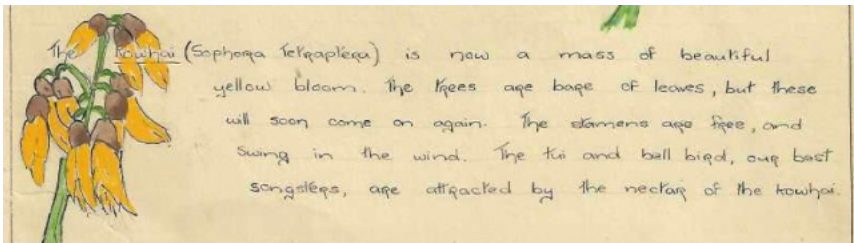 The Kowhai (Sophora Tetraptera) is now a mass of beautiful
yellow bloom. The trees are bare of leaves, but these
will soon come on again. The stamens are free, and
swing in the wind. The tui and bell bird, our best
songsters, are attracted by the nectar of the kowhai.